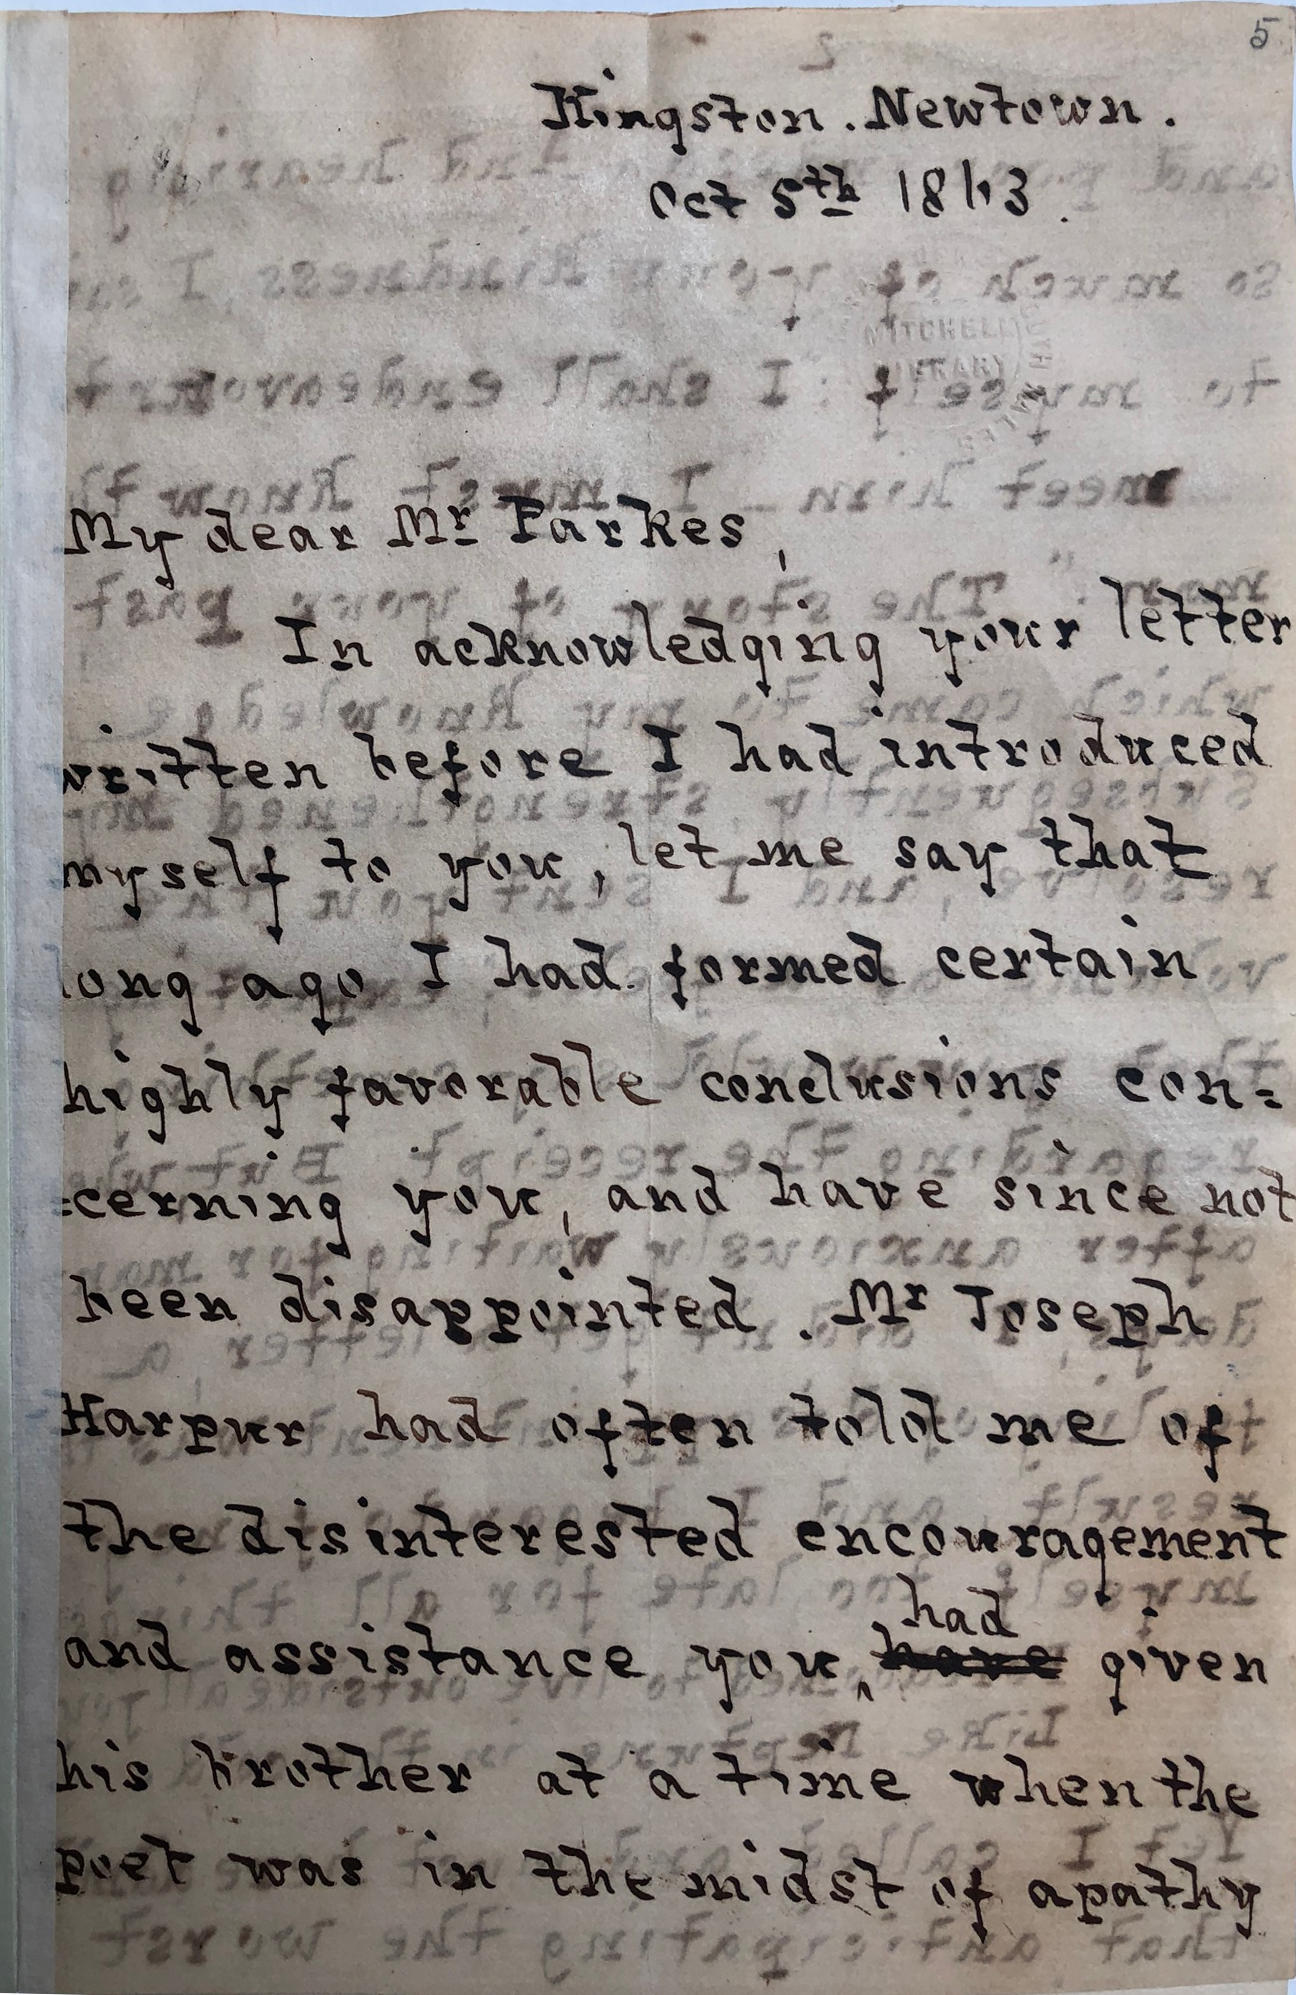 5
Kingston. Newtown.
Oct 5th 1863.
My dear Mr Parkes,
In acknowledging your letter
written before I had introduced
myself to you, let me say that
long ago I had formed certain
highly favorable conclusions con=
=cerning you, and have since not
been disappointed. Mr Joseph
Harpur had often told me of
the disinterested encouragement
and assistance you had have given
his brother at a time when the
poet was in the midst of apathy